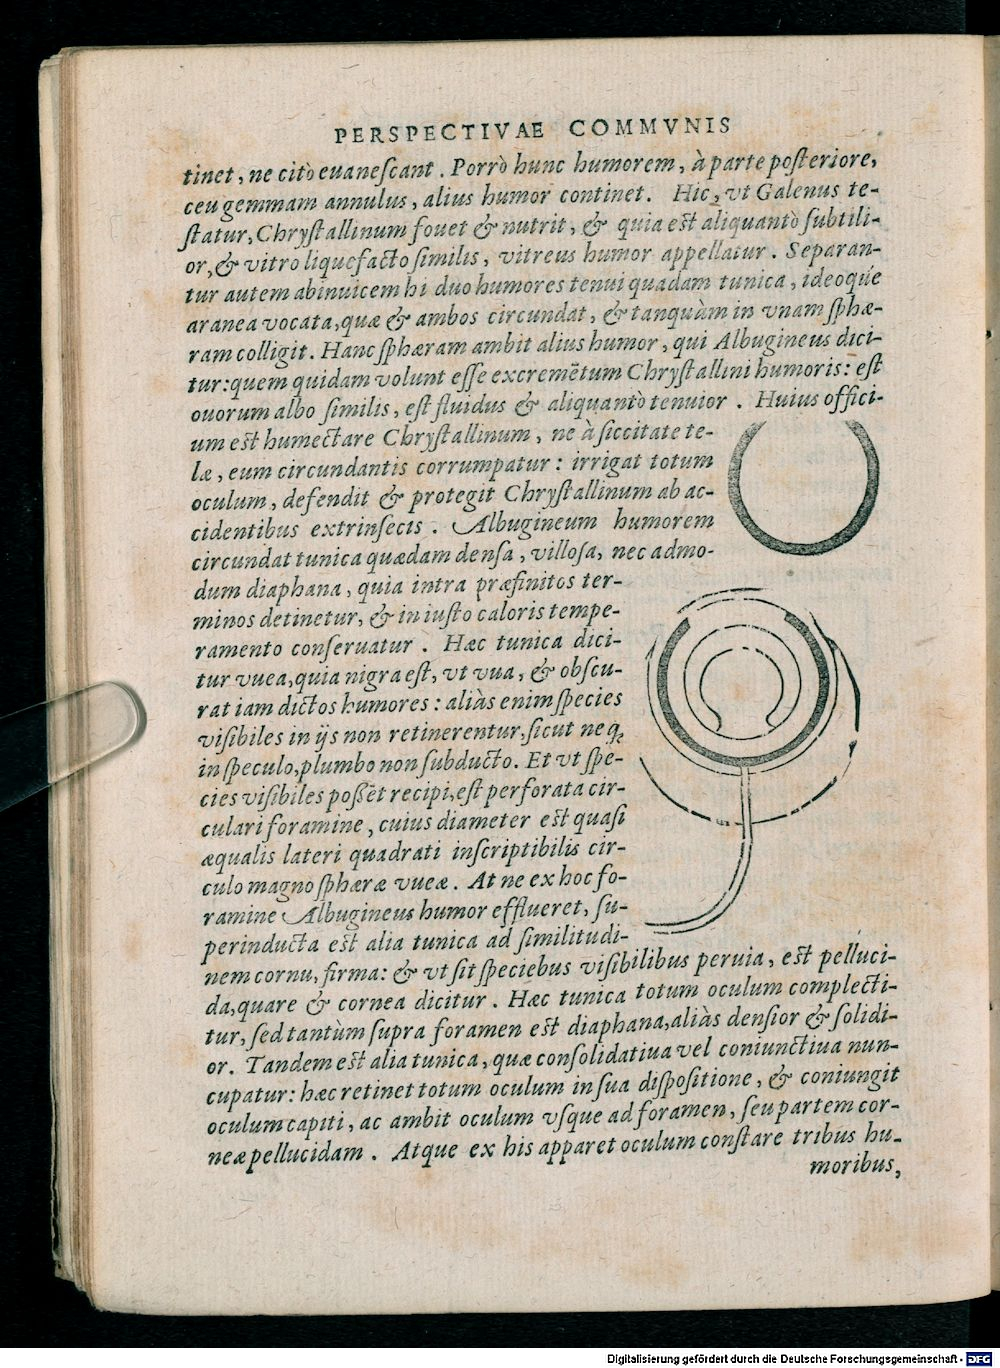 PERSPECTIVAE COMMVNIS
tinet, ne citò euanescant. Porrò hunc humorem, à parte posteriore,
ceu gemmam annulus, alius humor continet. Hic, vt Galenus te-
statur, Chrystallinum fouet & nutrit, & quia est aliquantò subtili-
or, & vitro liquefacto similis, vitreus humor appellatur. Separan-
tur autem abinuicem hi duo humores tenui quadam tunica, ideoque
aranea vocata, quæ & ambos circundat, & tanquàm in vnam sphæ-
ram colligit. Hanc sphæram ambit alius humor, qui Albugineus dici-
tur: quem quidam volunt esse excremẽtum Chrystallini humoris: est
ouorum albo similis, est fluidus & aliquantò tenuior. Huius offici-
um est humectare Chrystallinum, ne à siccitate te-
læ, eum circundantis corrumpatur: irrigat totum
oculum, defendit & protegit Chrystallinum ab ac-
cidentibus extrinsecis. Albugineum humorem
circundat tunica quædam densa, villosa, nec admo-
dum diaphana, quia intra præfinitos ter-
minos detinetur, & in iusto caloris tempe-
ramento conseruatur. Hæc tunica dici-
tur vuea, quia nigra est, vt vua, & obscu-
rat iam dictos humores: aliàs enim species
visibiles in ijs non retinerentur, sicut neq;
in speculo, plumbo non subducto. Et vt spe-
cies visibiles possẽt recipi, est perforata cir-
culari foramine, cuius diameter est quasi
æqualis lateri quadrati inscriptibilis cir-
culo magno sphæræ vueæ. At ne ex hoc fo-
ramine Albugineus humor efflueret, su-
perinducta est alia tunica ad similitudi-
nem cornu, firma: & vt sit speciebus visibilibus peruia, est pelluci-
da, quare & cornea dicitur. Hæc tunica totum oculum complecti-
tur, sed tantùm supra foramen est diaphana, aliàs densior & solidi-
or. Tandem est alia tunica, quæ consolidatiua vel coniunctiua nun-
cupatur: hæc retinet totum oculum in sua dispositione, & coniungit
oculum capiti, ac ambit oculum vsque ad foramen, seu partem cor-
neæ pellucidam. Atque ex his apparet oculum constare tribus hu-
moribus,
Digitalisierung gefördert durch die Deutsche Forschungsgemeinschaft - DFG